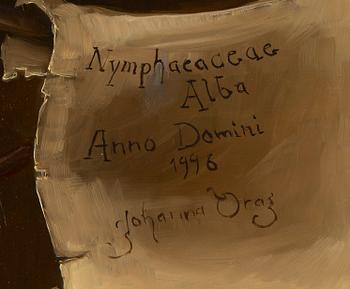 Nymphaeaceae
Alba
Anno Domini
1996
Johanna Oraz